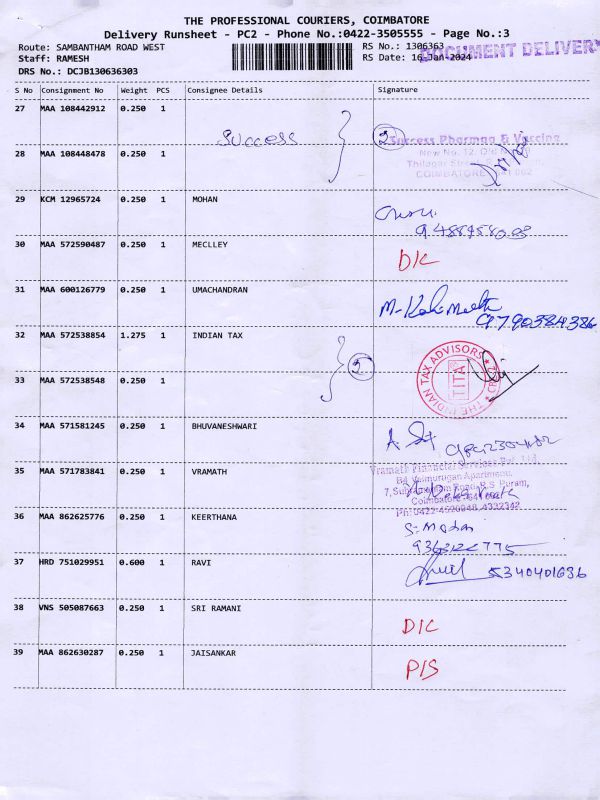 THE PROFESSIONAL COURIERS, COIMBATORE
Delivery Runsheet - PC2 - Phone No.:0422-3505555 - Page No.:3
Route: SAMBANTHAM ROAD WEST
RS No.: 1306363
DOCUMENT DELIVERY
Staff: RAMESH
RS Date: 16-Jan-2024
DRS No.: DCJB130636303
S No Consignment No Weight PCS Consignee Details Signature
27 MAA 108442912 0.250 1
Success 2
Success Pharma & Vaccine
New No. 12, Old
28 MAA 108448478 0.250 1
Thilagar Street,
COIMBATORE 641 002
29 KCM 12965724 0.250 1 MOHAN
30 MAA 572590487 0.250 1 MECLLEY
D/C
31 MAA 600126779 0.250 1 UMACHANDRAN
9790384386
32 MAA 572538854 1.275 1 INDIAN TAX
2
THE INDIAN TAX ADVISORS
TITA
33 MAA 572538548 0.250 1
34 MAA 571581245 0.250 1 BHUVANESHWARI
35 MAA 571783841 0.250 1 VRAMATH
Vramath Financial Services Pvt. Ltd.
Velmurugan Apartments,
7, Road, R.S. Puram,
Coimbatore - 641
Ph: 0422-4520948, 4322342
36 MAA 862625776 0.250 1 KEERTHANA
S. Mohan
37 HRD 751029951 0.600 1 RAVI
5340401636
38 VNS 505087663 0.250 1 SRI RAMANI
D/C
39 MAA 862630287 0.250 1 JAISANKAR
P/S